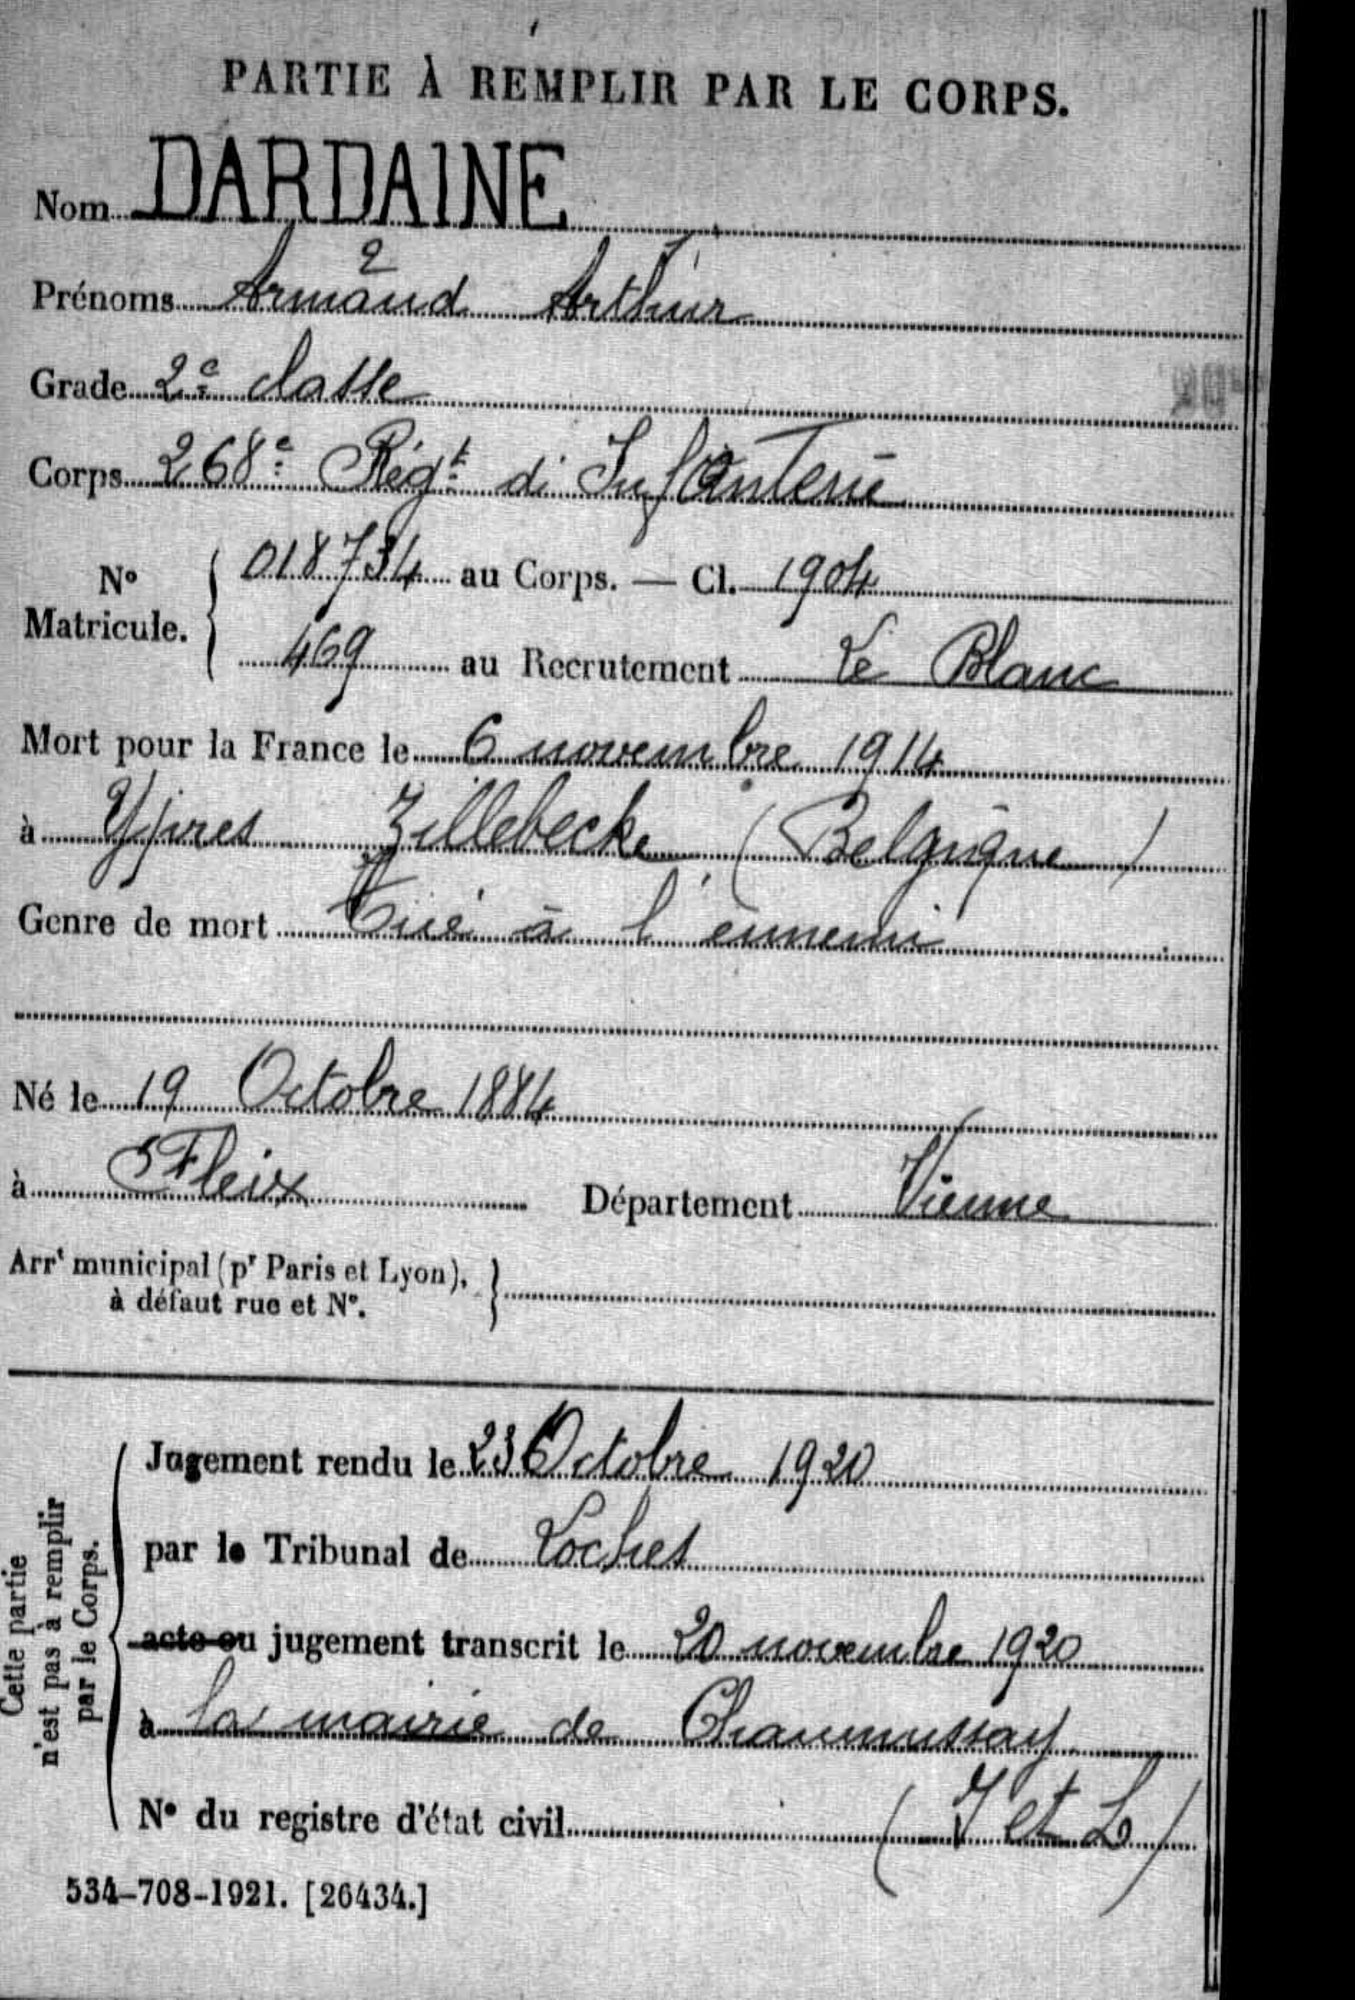 PARTIE À REMPLIR PAR LE CORPS.
Nom DARDAINE
2
Prénoms Armand Arthur
Grade 2e classe
Corps 268e Régt d'Infanterie
No Matricule. 018734 au Corps. — Cl. 1904
469 au Recrutement Le Blanc
Mort pour la France le 6 novembre 1914
à Ypres Zillebecke (Belgique)
Genre de mort Tué à l'ennemi
Né le 19 Octobre 1884
à Fleix Département Vienne
Arrt municipal (pr Paris et Lyon),
à défaut rue et No.
Cette partie
n'est pas à remplir
par le Corps.
Jugement rendu le 23 Octobre 1920
par le Tribunal de Loches
acte ou jugement transcrit le 20 novembre 1920
à la mairie de Chaumussay
No du registre d'état civil (I et L)
534-708-1921. [26434.]